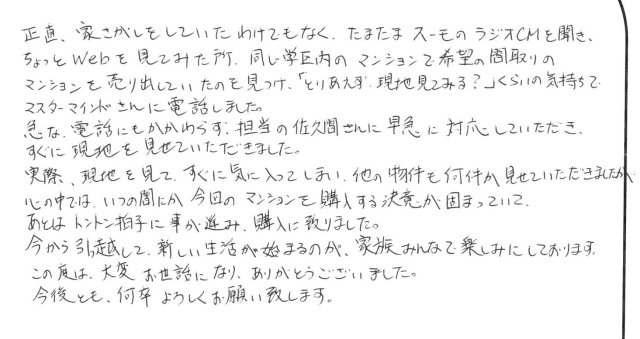 正直、家さがしをしていたわけでもなく、たまたま スーモの ラジオCMを聞き、
ちょっと Webを見てみた所、同じ学区内の マンションで希望の間取りの
マンションを売り出していたのを見つけ、「とりあえず 現地見てみる？」くらいの気持ちで
マスターマインドさんに電話しました。
急な電話にもかかわらず、担当の佐久間さんに早急に対応していただき、
すぐに現地を見せていただきました。
実際、現地を見て、すぐに気に入ってしまい、他の物件も何件か見せていただきましたが
心の中では、いつの間にか今回のマンションを購入する決意が固まっていて、
あとはトントン拍子に事が進み、購入に致りました。
今から引越して、新しい生活が始まるのが、家族みんなで楽しみにしております。
この度は、大変お世話になり、ありがとうございました。
今後とも、何卒よろしくお願い致します。